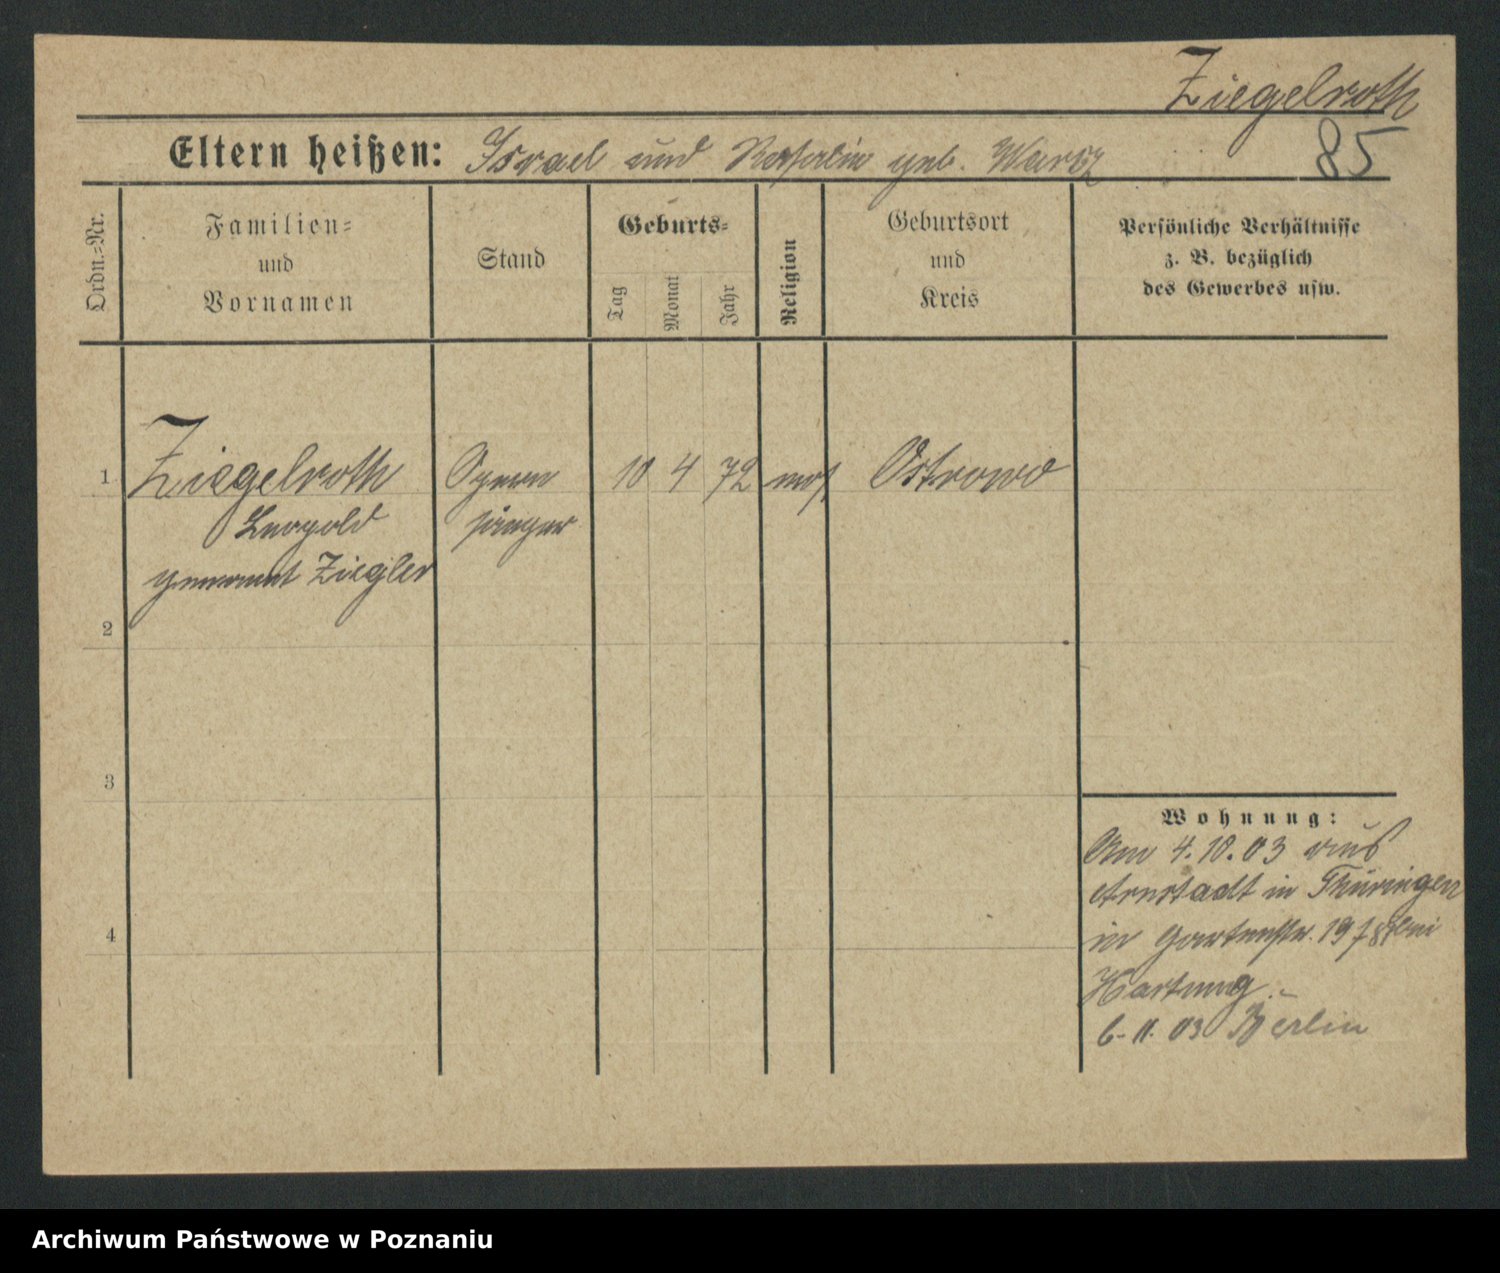 Ziegelroth
85
Eltern heißen: Israel und Rosalie geb.
Ordn.-Nr.
Familien-
und
Vornamen
Stand
Geburts-
Tag
Monat
Jahr
Religion
Geburtsort
und
Kreis
Persönliche Verhältnisse
z. B. bezüglich
des Gewerbes usw.
1 Ziegelroth Opern 10 4 72 mos Ostrowo
Leopold sänger
genannt Ziegler
2
3
4
Wohnung:
Am 4.10.03 aus
Arnstadt in Thüringen
in Gartenstr. 19 bei
Hartung.
6. 11. 03 Berlin
Archiwum Państwowe w Poznaniu